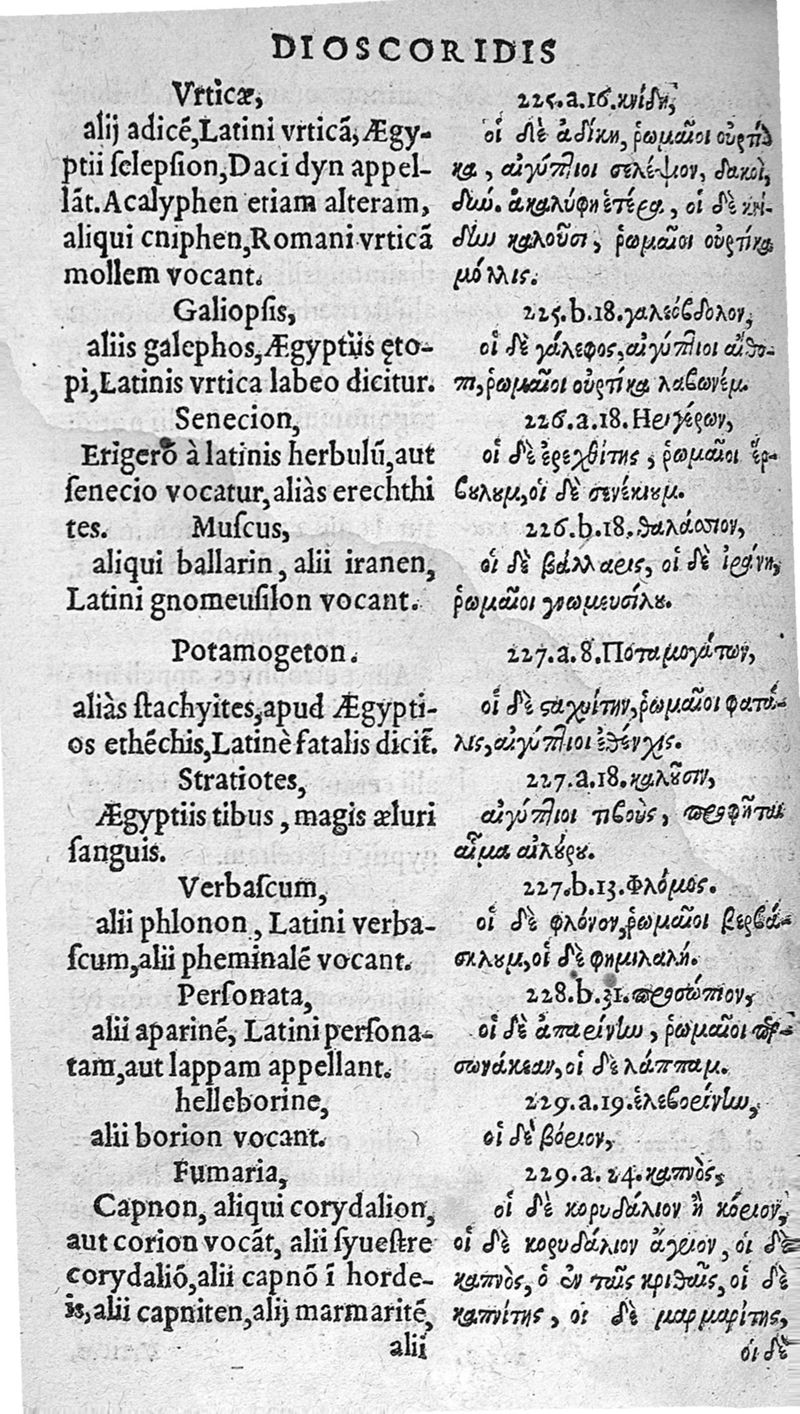 DIOSCORIDIS
Vrticæ,
alij adicẽ,Latini vrticã,Ægy-
ptii ſelepſion,Daci dyn appel-
lãt.Acalyphen etiam alteram,
aliqui cniphen,Romani vrticã
mollem vocant.
Galiopſis,
aliis galephos,Ægyptiis ęto-
pi,Latinis vrtica labeo dicitur.
Senecion,
Erigerõ à latinis herbulũ,aut
ſenecio vocatur,aliàs erechthi
tes. Muſcus,
aliqui ballarin, alii iranen,
Latini gnomeuſilon vocant.
Potamogeton.
aliàs ſtachyites,apud Ægypti-
os ethẽchis,Latinè fatalis dicit̃.
Stratiotes,
Ægyptiis tibus, magis æluri
ſanguis.
Verbaſcum,
alii phlonon, Latini verba-
ſcum,alii pheminalẽ vocant.
Perſonata,
alii aparinẽ, Latini perſona-
tam,aut lappam appellant.
helleborine,
alii borion vocant.
Fumaria,
Capnon, aliqui corydalion,
aut corion vocãt, alii ſyueſtre
corydaliõ,alii capnõ ĩ horde-
is,alii capniten,alij marmaritẽ,
alii
225.a.16.κνίδη,
οἱ δὲ ἀδίκη, ῥωμαῖοι οὐρτί
κα, αἰγύπτιοι σελέψιον, δακοὶ,
δύν. ἀκαλύφη ἑτέρα, οἱ δὲ κνί-
δην καλοῦσι, ῥωμαῖοι οὐρτίκα
μόλλις.
225.b.18.γαλεόβδολον,
οἱ δὲ γάλεφος,αἰγύπτιοι αἰθο-
πι,ῥωμαῖοι οὐρτίκα λαβωνέμ.
226.a.18.Ηριγέρων,
οἱ δὲ ἐρεχθίτης, ῥωμαῖοι ἔρ-
βουλουμ,οἱ δὲ σενέκιουμ.
226.b.18.θαλάσσιον,
οἱ δὲ βάλλαρις, οἱ δὲ ἰράνη,
ῥωμαῖοι γνωμευσίλου.
227.a.8.Ποταμογάτων,
οἱ δὲ σαχυίτην,ῥωμαῖοι φατά-
λις,αἰγύπτιοι ἐθένχις.
227.a.18.καλοῦσιν,
αἰγύπτιοι τιβοὺς, προφῆται
αἷμα αἰλούρου.
227.b.13.Φλόμος.
οἱ δὲ φλόνον,ῥωμαῖοι βερβά-
σκλουμ,οἱ δὲ φημιλαλή.
228.b.31.προσώπιον,
οἱ δὲ ἀπαρίνην, ῥωμαῖοι περ-
σωνάκεαν,οἱ δὲ λάππαμ.
229.a.19.ἑλεβορίνην,
οἱ δὲ βόριον,
229.a.24.καπνὸς,
οἱ δὲ κορυδάλιον ἢ κόριον,
οἱ δὲ κορυδάλιον ἄγριον, οἱ δὲ
καπνὸς, ὁ ἐν ταῖς κριθαῖς,οἱ δὲ
καπνίτης, οἱ δὲ μαρμαρίτης,
οἱ δὲ